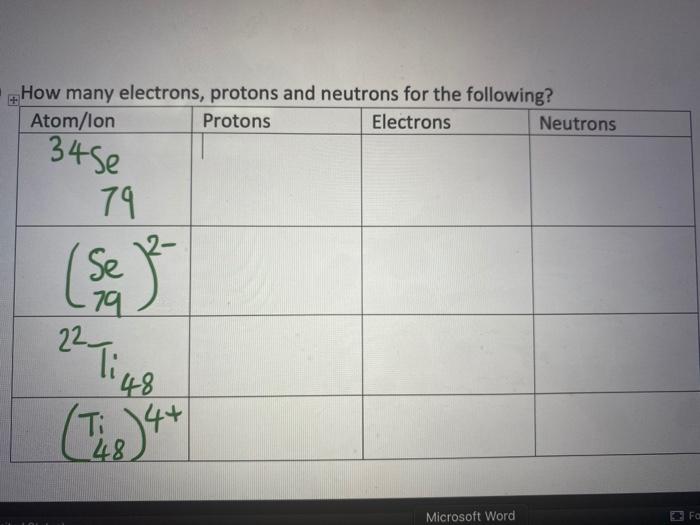 How many electrons, protons and neutrons for the following?
Atom/Ion Protons Electrons Neutrons
34 Se
79
(Se)2-
79
22 Ti 48
(Ti)4+
48
Microsoft Word